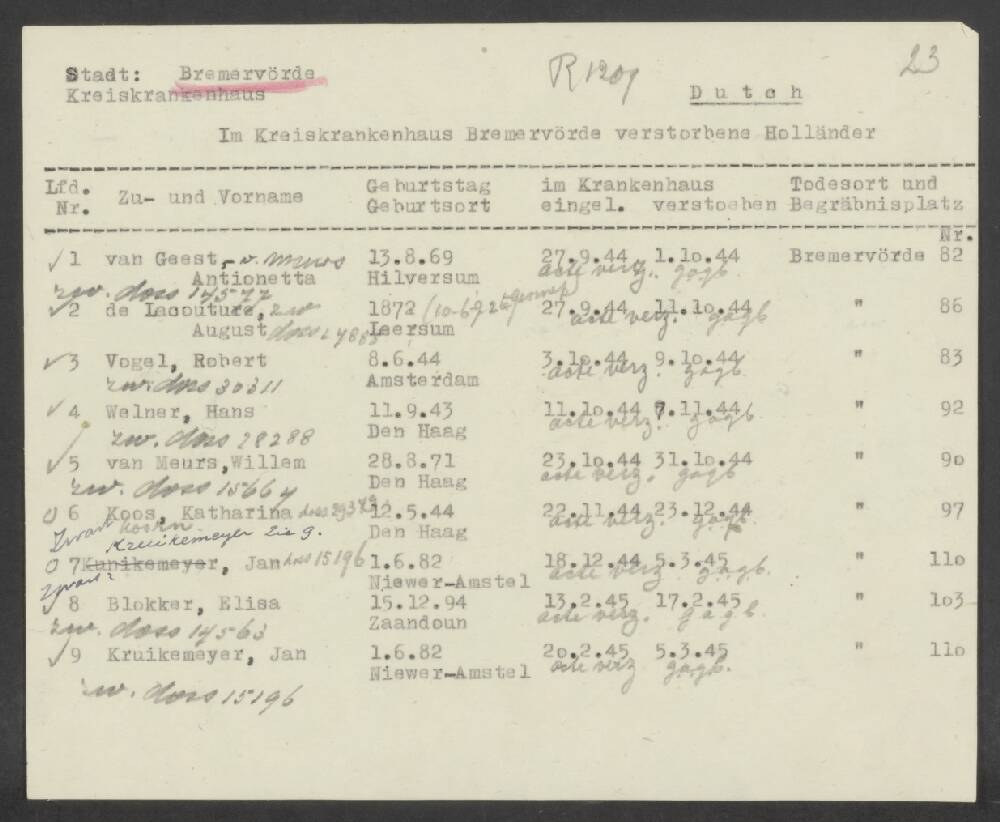 Stadt: Bremervörde R 1209 23
Kreiskrankenhaus D u t c h
Im Kreiskrankenhaus Bremervörde verstorbene Holländer
Lfd. Geburtstag im Krankenhaus Todesort und
Nr. Zu- und Vorname Geburtsort eingel. verstoeben Begräbnisplatz
Nr.
√1 van Geest,-v. Meurs 13.8.69 27.9.44 1.10.44 Bremervörde 82
Antionetta Hilversum acte verz. gagb.
zw. doss 14577
√2 de Lacouture, zw 1872 (10-6-9 27.9.44 11.10.44 " 86
August doss Leersum acte verz. gagb
√3 Vogel, Robert 8.6.44 3.10.44 9.10.44 " 83
zw. doss 30311 Amsterdam acte verz. gagb.
√4 Welner, Hans 11.9.43 11.10.44 7.11.44 " 92
zw. doss 28288 Den Haag acte verz. gagb
√5 van Meurs,Willem 28.8.71 23.10.44 31.10.44 " 90
zw. doss 15664 Den Haag acte verz. gagb
0 6 Koos, Katharina doss 12.5.44 22.11.44 23.12.44 " 97
Den Haag acte verz. gagb.
Kruikemeyer Zie 9.
0 7 Kunikemeyer, Jan doss 15196 1.6.82 18.12.44 5.3.45 " 110
Niewer-Amstel acte verz. gagb.
√8 Blokker, Elisa 15.12.94 13.2.45 17.2.45 " 103
zw. doss 14563 Zaandoun acte verz. gagb.
√9 Kruikemeyer, Jan 1.6.82 20.2.45 5.3.45 " 110
Niewer-Amstel acte verz gagb.
zw. doss 15196